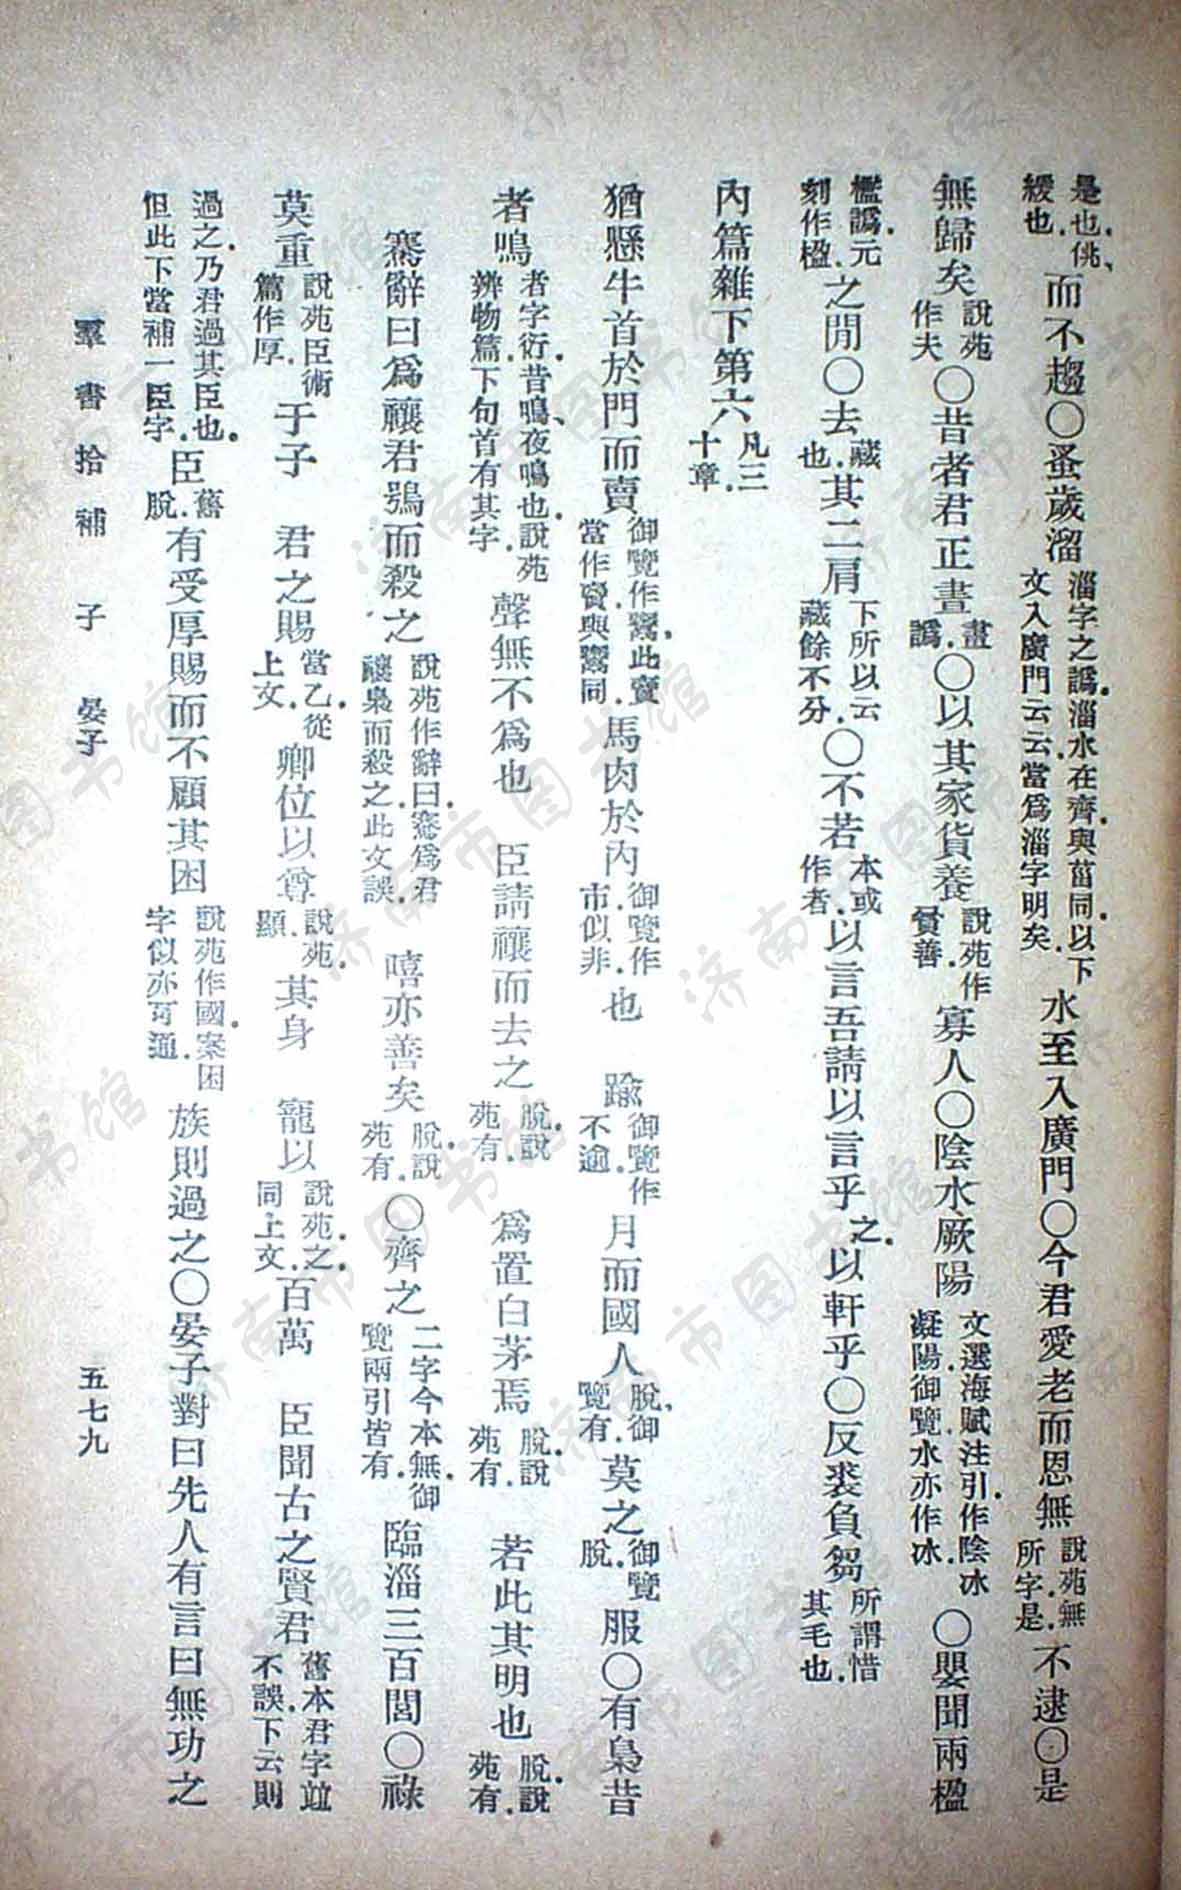 是也佻、緩也.而不趨○蚤歲溜淄字之譌.淄水在齊.與菑同.以下文入廣門云云當爲淄字明矣.水至入廣門○今君愛老而恩無說苑無所字.是.不逮○是
無歸矣說苑作夫.○昔者君正晝晝譌.○以其家貨養說苑作貧善.寡人○陰水厥陽文選海賦注引作陰冰凝陽.御覽水亦作冰.○嬰聞兩楹
檻譌.元刻作楹.之閒○去藏也.其二肩下所以云藏餘不分.○不若本或作者.以言吾請以言乎之.以軒乎○反裘負芻所謂惜其毛也.
內篇雜下第六凡三十章.
猶懸牛首於門而賣御覽作鬻.此賣當作𧶠.與鬻同.馬肉於內御覽作市.似非.也 踰御覽作不逾.月而國人脫.御覽有.莫之御覽脫.服○有梟昔
者鳴者字衍.昔鳴、夜鳴也.說苑辨物篇.下句首有其字.聲無不爲也 臣請禳而去之脫.說苑有.爲置白茅焉脫.說苑有.若此其明也脫.說苑有.
騫辭曰爲禳君鴞而殺之說苑作辭曰.騫爲君禳梟而殺之.此文誤.嘻亦善矣脫.說苑有.○齊之二字今本無.御覽兩引皆有.臨淄三百閭○祿
莫重說苑臣術篇作厚.于子 君之賜當乙.從上文.卿位以尊說苑.顯.其身 寵以說苑.之.同上文.百萬 臣聞古之賢君舊本君字竝不誤.下云則
過之.乃君過其臣也.但此下當補一臣字.臣舊脫.有受厚賜而不顧其困說苑作國.案困字似亦可通.族則過之○晏子對曰先人有言曰無功之
羣書拾補 子 晏子 五七九